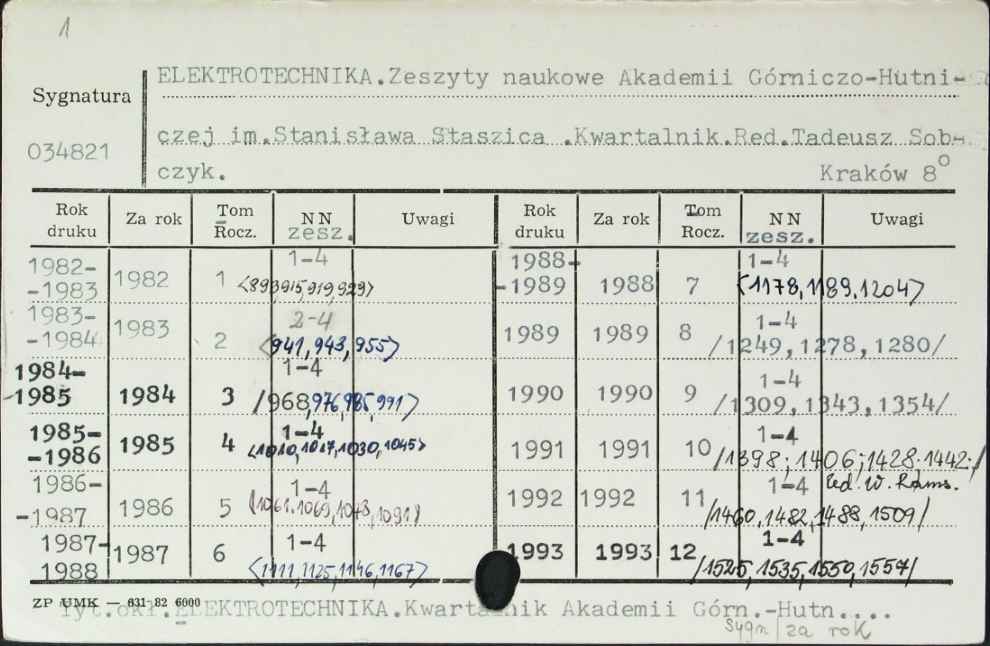 1
ELEKTROTECHNIKA.Zeszyty naukowe Akademii Górniczo-Hutni-
Sygnatura
czej im.Stanisława Staszica .Kwartalnik.Red.Tadeusz Sob-
034821
czyk. Kraków 8°
Rok druku Za rok Tom Rocz. NN zesz. Uwagi Rok druku Za rok Tom Rocz. NN zesz. Uwagi
1982-
-1983 1982 1 1-4 <893,915,919,929>
1988-
-1989 1988 7 1-4 <1178,1189,1204>
1983-
-1984 1983 2 2-4 <941,943,955>
1989 1989 8 1-4 /1249,1278,1280/
1984-
-1985 1984 3 1-4 /968,976,985,991>
1990 1990 9 1-4 /1309,1343,1354/
1985-
-1986 1985 4 1-4 <1010,1017,1030,1045>
1991 1991 10 1-4 /1398;1406;1428.1442./
1986-
-1987 1986 5 1-4 /1061.1069,1078,1091/
1992 1992 11 1-4 Red. W. Rams.
/1460,1482,1488,1509/
1987-
1988 1987 6 1-4 <1111,1125,1146,1167>
1993 1993 12 1-4 /1525,1535,1550,1557/
ZP UMK — 631 82 6000
Tyt.okł.ELEKTROTECHNIKA.Kwartalnik Akademii Górn.-Hutn....
sygn/za rok